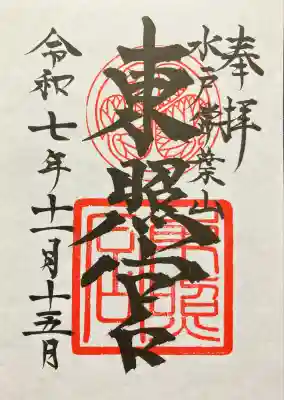 奉拝
水戸常葉山
東照宮
令和七年十一月十五日